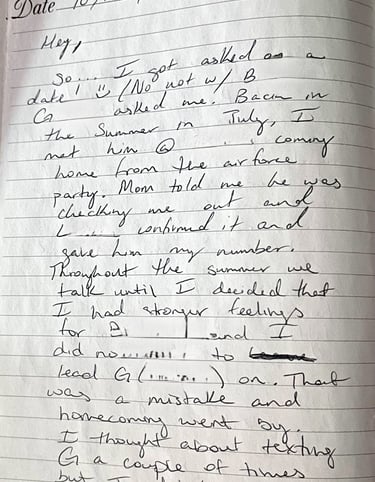 Date 10,
Hey,
So... I got asked on a
date! (No not w/ B
G asked me. Back in
the Summer in July, I
met him @ coming
home from the airforce
party. Mom told me he was
checking me out and
L confirmed it and
gave him my number.
Throughout the summer we
talk until I decided that
I had stronger feelings
for B and I
did no to
lead G (......) on. That
was a mistake and
homecoming went by.
I thought about texting
G a couple of times
but I